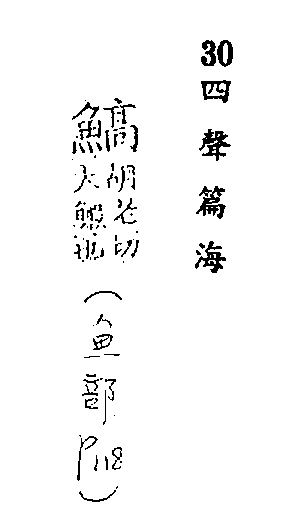 30 四聲篇海
鰝
胡老切
大鰕也
(鱼部P118)